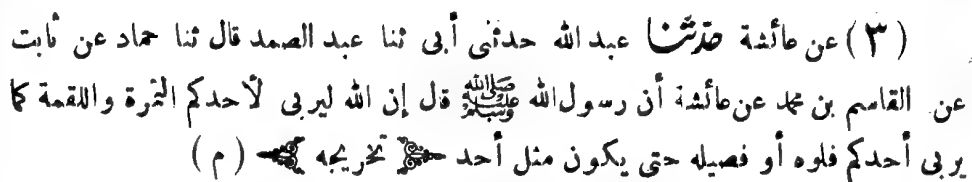 (٣) عن عائشة حدثنا عبد الله حدثنى أبى ثنا عبد الصمد قال ثنا حماد عن ثابت
عن القاسم بن محمد عن عائشة أن رسول الله ﷺ قال إن الله ليربى لأحدكم التمرة واللقمة كما
يربى أحدكم فلوه أو فصيله حتى يكون مثل أحد تخريجه (م)